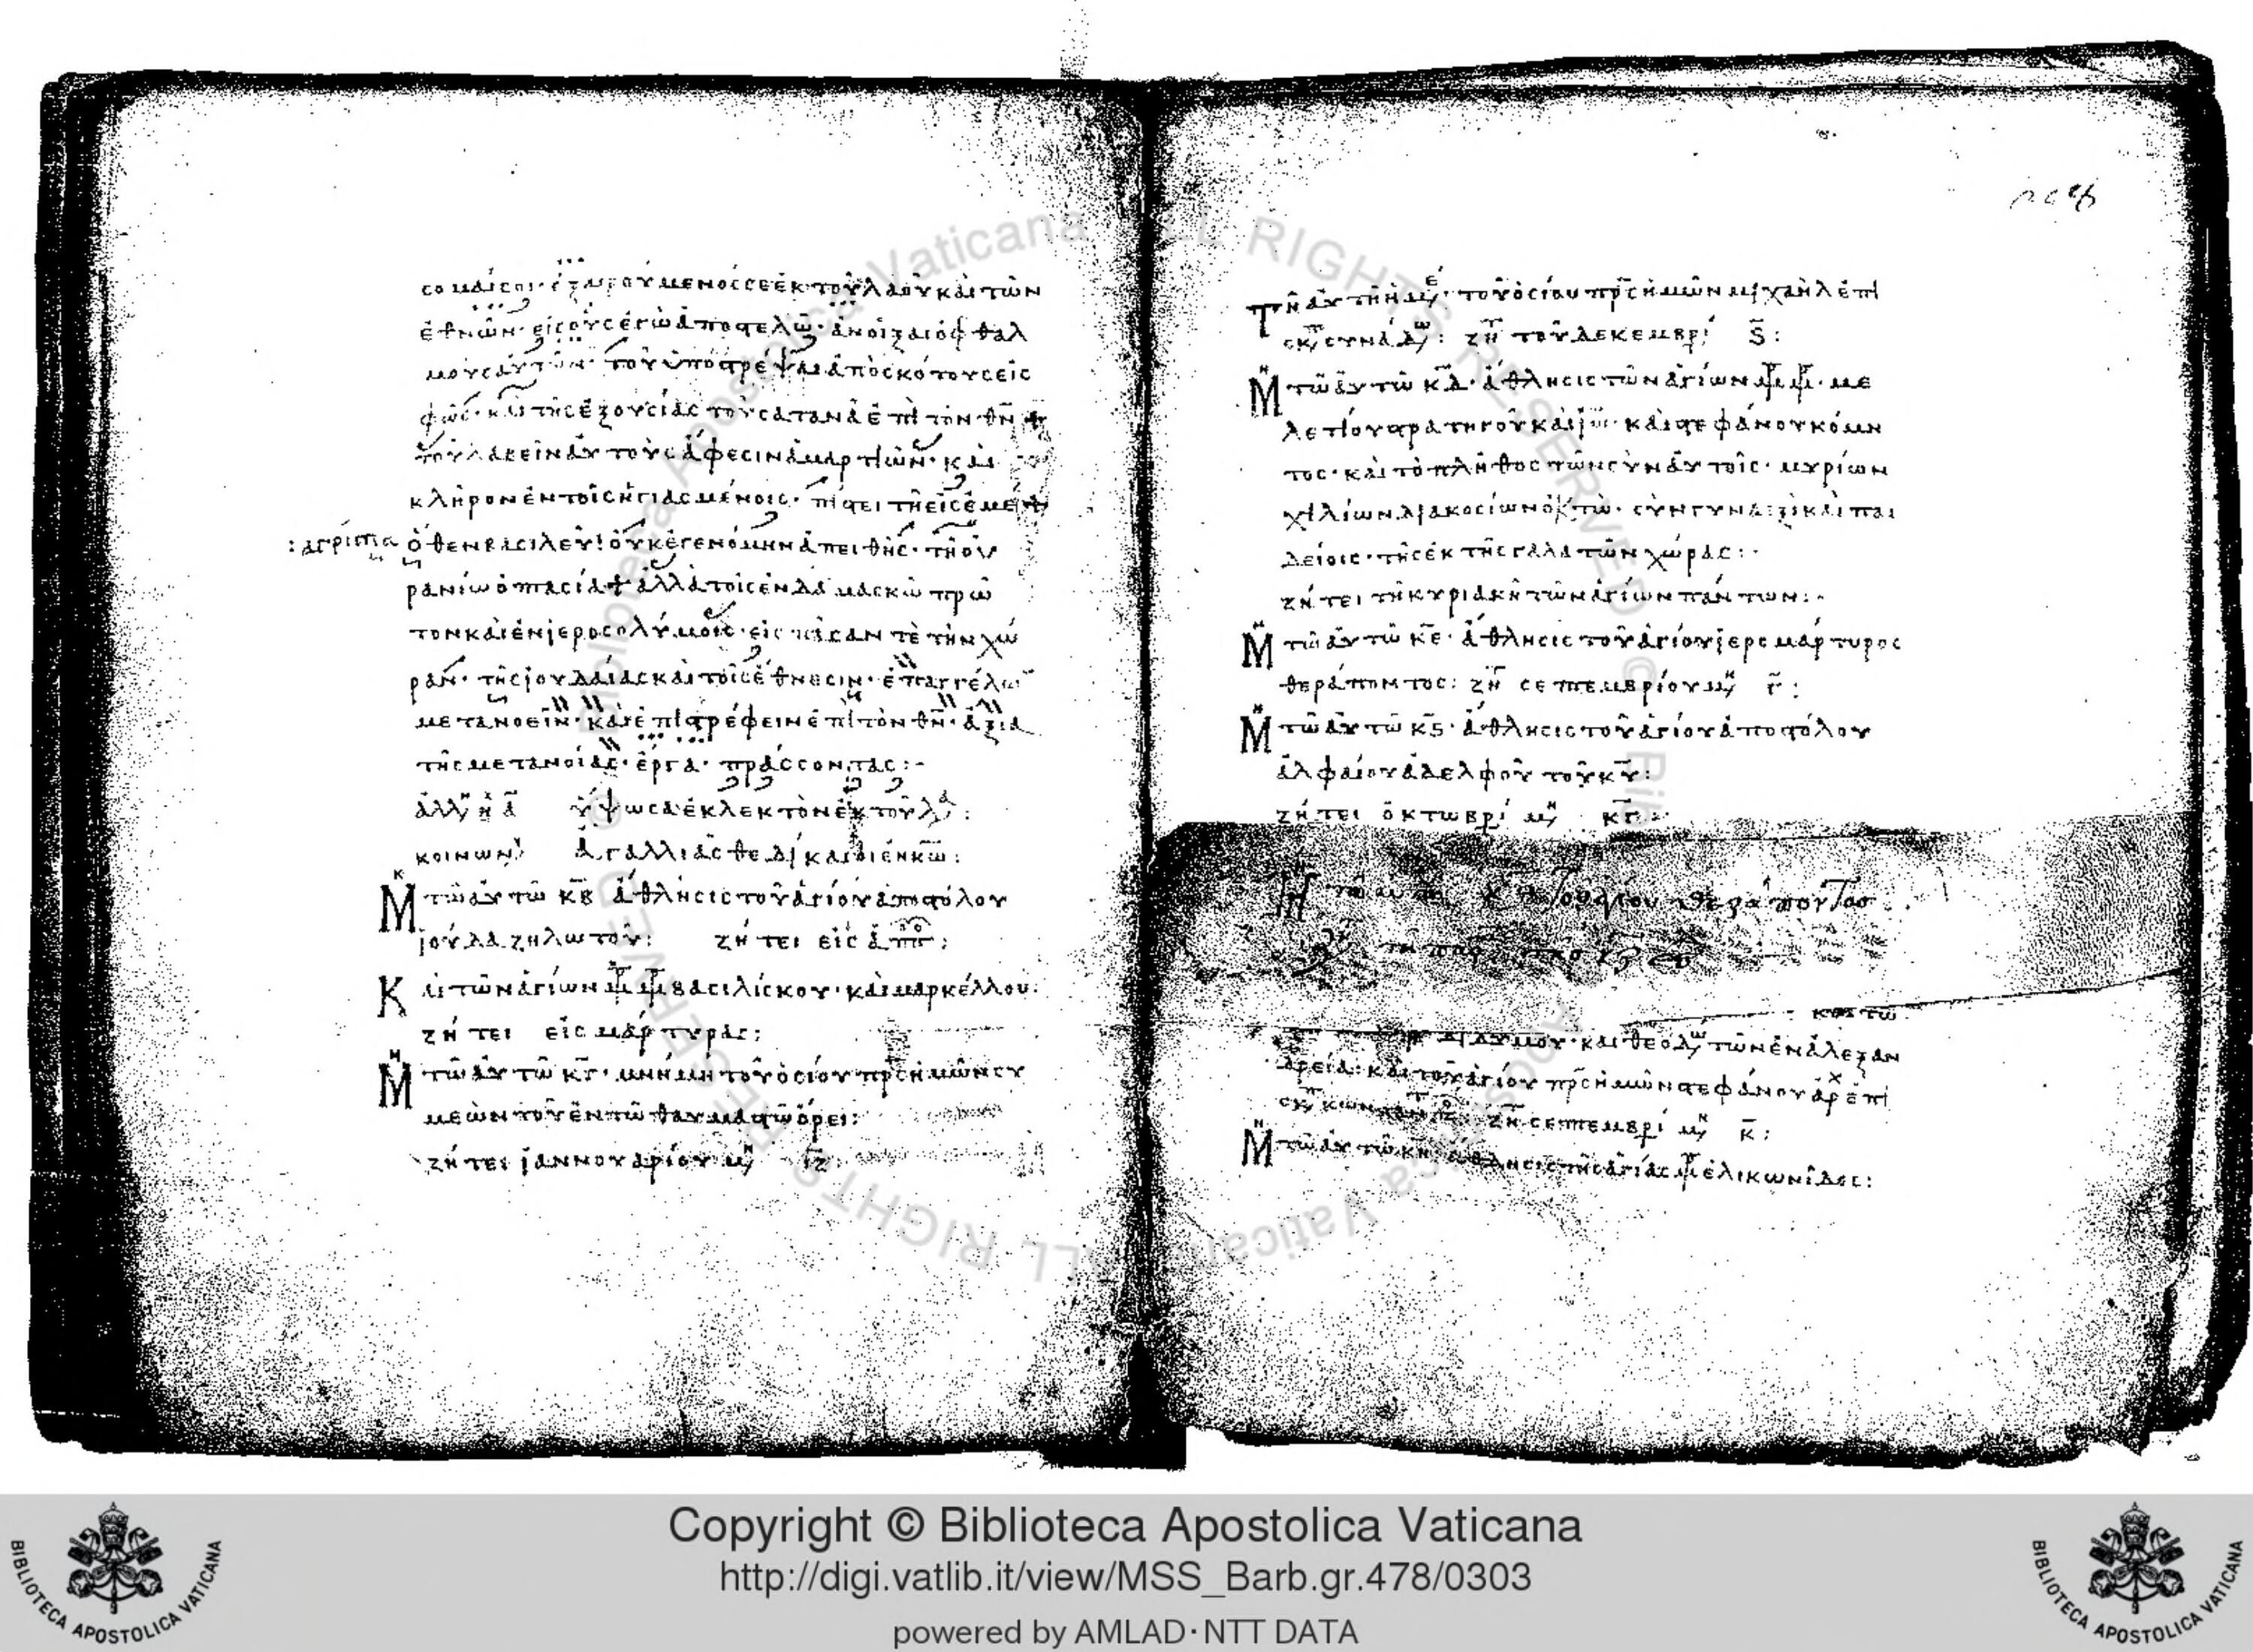 σομαί σοι· ἐξαιρούμενός σε ἐκ τοῦ λαοῦ καὶ τῶν
ἐθνῶν· εἰς οὓς ἐγὼ ἀποστελῶ· ἀνοῖξαι ὀφθαλ
μοὺς αὐτῶν· τοῦ ὑποστρέψαι ἀπὸ σκότους εἰς
φῶς· καὶ τῆς ἐξουσίας τοῦ σατανᾶ ἐπὶ τὸν θν
τοῦ λαβεῖν αὐτοὺς ἄφεσιν ἁμαρτιῶν· καὶ
κλῆρον ἐν τοῖς ἡγιασμένοις· πίστει τῇ εἰς ἐμέ
: αγρίππα ὅθεν βασιλεῦ οὐκ ἐγενόμην ἀπειθής· τῇ οὐ
ρανίω ὀπτασία ἀλλὰ τοῖς ἐν δαμασκῶ πρῶ
τον καὶ ἐν ἱεροσολύμοις· εἰς πᾶσάν τε τὴν χώ
ραν· τῆς ἰουδαίας καὶ τοῖς ἔθνεσιν· ἐπαγγέλω
μετανοεῖν· καὶ ἐπιστρέφειν ἐπὶ τὸν θν· ἄξια
τῆς μετανοίας· ἔργα· πράσσοντας :-
ἀλλη ἦ α ὕψωσα ἐκλεκτὸν ἐκ τοῦ λα :
κοινων ἀγαλλιᾶσθε δικαιοι ἐν κω :
Μ τῶ αὐτῶ κβ ἄθλησις τοῦ ἁγίου ἀποστόλου
ἰούδα ζηλωτοῦ: ζήτει εἰς ἀπο :
Καὶ τῶν ἁγίων μμ βασιλίσκου· καὶ μαρκέλλου:
ζήτει εἰς μάρτυρας:
Μ τῶ αὐτῶ κγ· μνήμη τοῦ ὁσίου πρς ἡμῶν συ
μεὼν τοῦ ἐν τῶ θαυμαστῶ ὄρει:
ζήτει ἰαννουαρίου μη ιζ:
Τῆ αὐτῆ ἡμε τοῦ ὁσίου πρς ἡμῶν μιχαὴλ ἐπι
σκ συνάδω: ζη τοῦ δεκεμβρι ς :
Μ τῶ αὐτῶ κδ· ἄθλησις τῶν ἁγίων μμ· με
λετίου στρατηγοῦ καὶ ιω· καὶ στεφάνου κόμη
τος· καὶ τὸ πλῆθος τῶν σὺν αὐτοῖς· μυρίων
χιλίων διακοσίων ὀκτώ· σὺν γυναιξὶ καὶ παι
δείοις· τῆς ἐκ τῆς γαλατῶν χώρας:-
ζήτει τῆ κυριακῆ τῶν ἁγίων πάντων:-
Μ τῶ αὐτῶ κε· ἄθλησις τοῦ ἁγίου ἱερομάρτυρος
θεράποντος: ζη σεπτεμβρίου μη γ :
Μ τῶ αὐτῶ κς· ἄθλησις τοῦ ἁγίου ἀποστόλου
ἀλφαίου ἀδελφοῦ τοῦ κυ:
ζήτει ὀκτωβρι μη κγ:
θεράποντος
και τω
διδύμου· καὶ θεοδω τῶν ἐν ἀλεξαν
δρεία: καὶ τοῦ ἁγίου πρς ἡμῶν στεφάνου ἀρχ ἐπι
σκ κων ζη σεπτεμβρι μη κ :
Μ τῶ αὐτῶ κη· ἄθλησις τῆς ἁγίας μ ἑλικωνίδος:
Copyright © Biblioteca Apostolica Vaticana
http://digi.vatlib.it/view/MSS_Barb.gr.478/0303
powered by AMLAD·NTT DATA
BIBLIOTECA APOSTOLICA VATICANA
BIBLIOTECA APOSTOLICA VATICANA